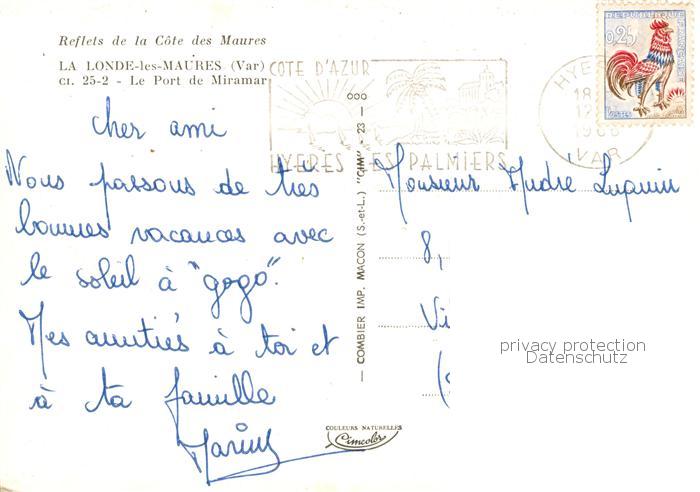 Reflets de la Côte des Maures
LA LONDE-les-MAURES (Var)
CI. 25-2 - Le Port de Miramar
COTE D'AZUR
HYERES LES PALMIERS
REPUBLIQUE FRANÇAISE
0,25
POSTES
HYE
18
12
VAR
cher ami
Nous passons de très
bonnes vacances avec
le soleil à "gogo".
Mes amitiés à toi et
à ta famille
— COMBIER IMP. MACON (S.-et-L.) "CIM" - 23 —
Monsieur André
8,
Vi
privacy protection
Datenschutz
COULEURS NATURELLES
Cimcolor